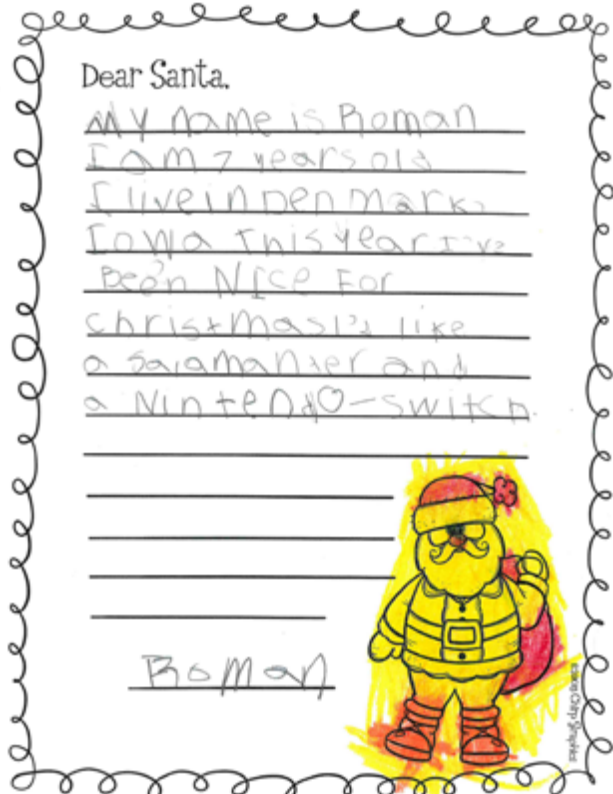 Dear Santa,
My name is Roman
I am 7 years old
I live in Den mark,
Iowa This year I've
Been NICE For
christmas I'd like
a salamanter and
a Nintendo-switch.
Roman